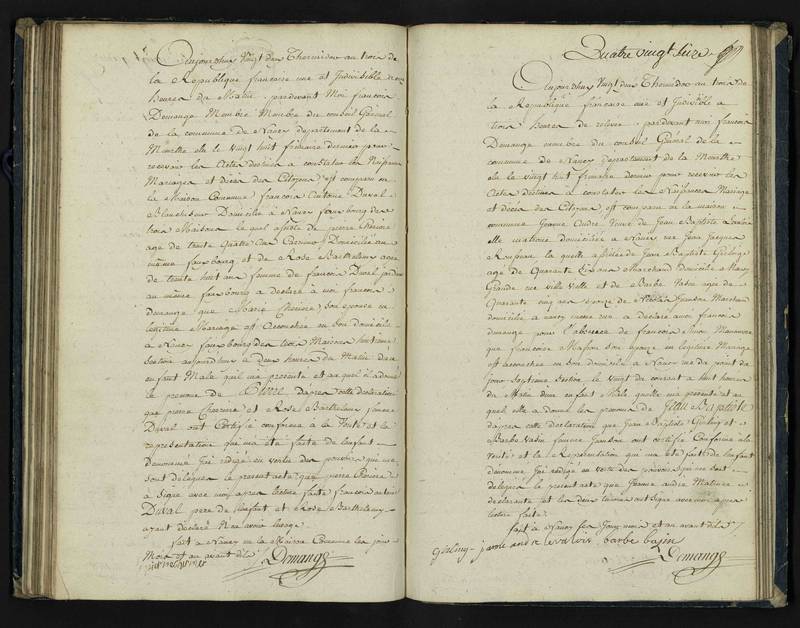 Aujourdhuy Vingt deux Thermidor an trois de
la Republique francaise une et Indivisible
heures du Matin pardevant Moi francois
Demange Membre du conseil General
de la commune de Nancy departement de la
Meurthe elu le vingt huit frimaire dernier pour
recevoir les Actes destinés a constater les Naissances
Mariages et décès des Citoyens est comparu en
la Maison Commune francois Antoine Duval
Blanchisseur Domicilié a Nancy fauxbourg des
trois Maisons le quel assisté de pierre
age de trente quatre ans Domicilié au
même fauxbourg et de Rose Barthelemy agee
de trente huit ans femme de francois Duval
au même fauxbourg a declaré à moi francois
demange que Marie son epouse en
legitime Mariage est accouchée en son domicile
a Nancy fauxbourg des trois Maisons huitieme
Section aujourdhuy à Deux heures du Matin d'un
enfant Male quil ma presenté et auquel il a donné
le prenom de Pierre d'apres cette declaration
que pierre et Rose Barthelemy femme
Duval ont Certifié conforme à la Verité et la
representation qui ma été faite de lenfant
Denommé Jai redigé en vertu des pouvoirs qui me
sont delegués le present acte que pierre
a Signé avec moi apres lecture faite francois antoine
Duval pere de lenfant et Rose Barthelemy
ayant declaré Ne avoir lusage
fait a Nancy en la Maison Commune les jour
Mois et an avant dits
Demange
Quatre vingt seize
Aujourdhuy Vingt deux Thermidor an trois de
la Republique française une et Indivisible a
trois heures de relevée pardevant moi francois
Demange membre du conseil Général de la
commune de Nancy departement de la Meurthe
elu le vingt huit frimaire dernier pour recevoir les
Actes destinés a constater les Naissances Mariages
et décès des Citoyens est comparu en la maison
commune Jeanne André Veuve de Jean Baptiste
elle matrone domiciliée a Nancy rue Jean Jacques
Rousseau la quelle assistée de Jean Baptiste
age de Quarante ans Marchand domicilié a Nancy
Grande rue ville Vielle et de Barbe agée de
Quarante cinq ans epouse de Nicolas Marchand
domiciliée a nancy meme rue a Declaré a moi francois
demange pour l'absence de francois Manœuvre
que francoise Masson son epouse en legitime Mariage
est accouchee en son domicile a Nancy rue du point du
Jour Septieme Section le vingt du courant a huit heures
du Matin d'un enfant Male quelle ma presenté et au
quel elle a donné les prenoms de Jean Baptiste
d'apres cette declaration que Jean Baptiste et
Barbe femme ont certifié Conforme a la
verité et la Representation qui ma été faite de lenfant
denommé Jai redigé en vertu des pouvoirs qui me sont
delegués le present acte que Jeanne andré Matrone
declarante et les deux temoins ont Signé avec moi apres
lecture faite
fait a Nancy les Jour mois et an avant dits
barbe
Demange